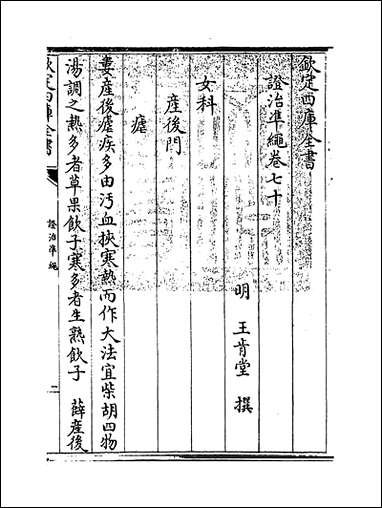 欽定四庫全書
證治準繩卷七十
明 王肯堂 撰
女科
產後門
瘧
婁產後瘧疾多由汚血挾寒熱而作大法宜柴胡四物
湯調之熱多者草果飲子寒多者生熟飲子 薛產後
欽定四庫全書
證治準繩